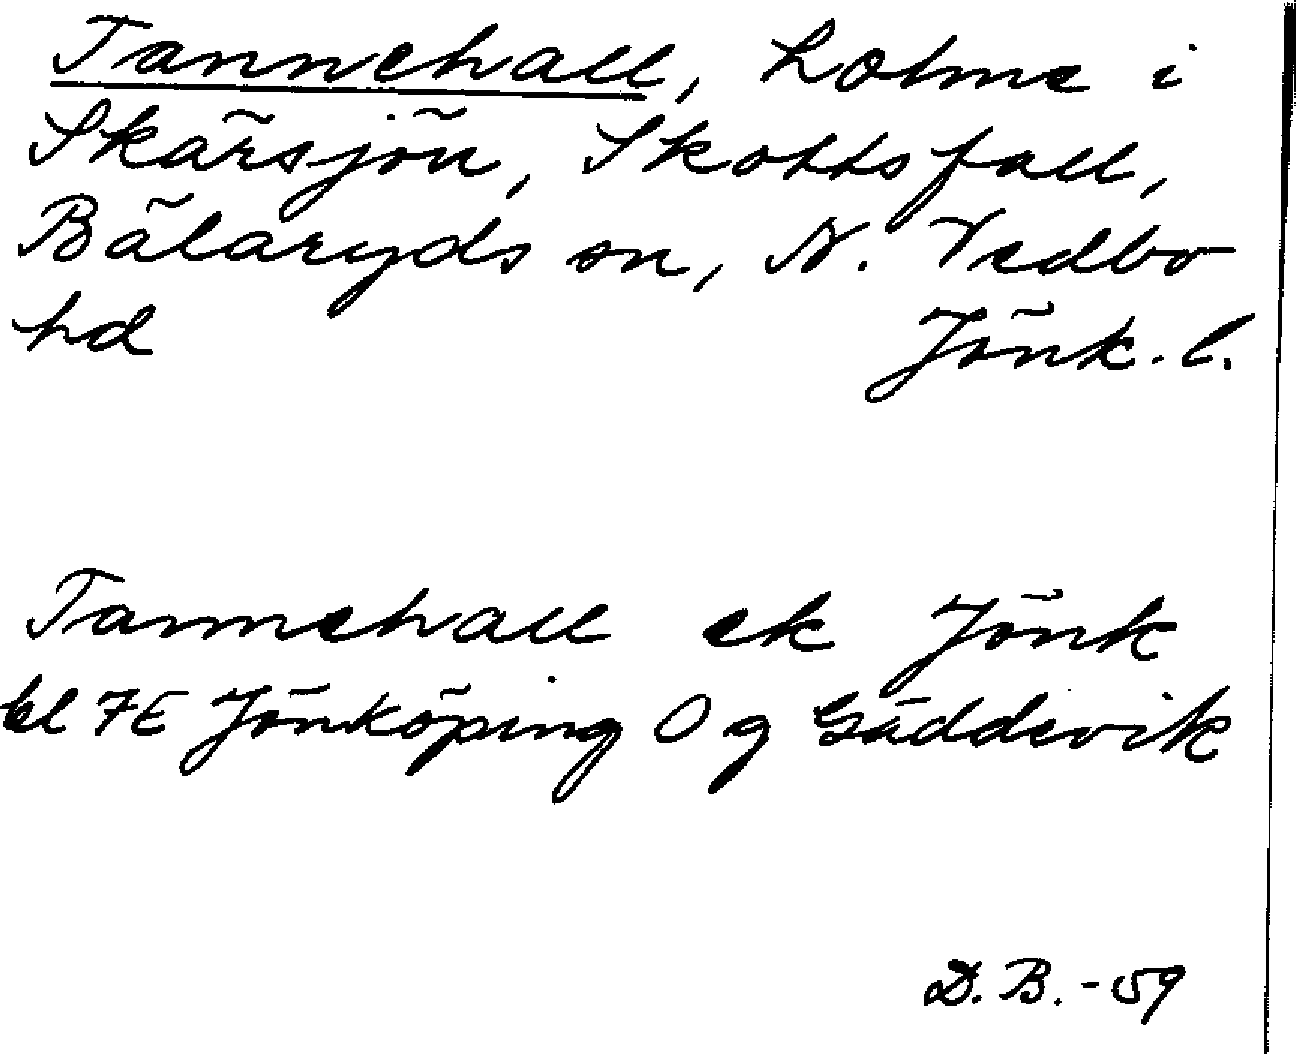 Tannehall, holme i
Skärsjön, Skottsfall,
Bälaryds sn, N. Vedbo
hd Jönk. l.
Tannehall ek Jönk
bl 7E Jönköping O g Gäddevik
D. B. - 59